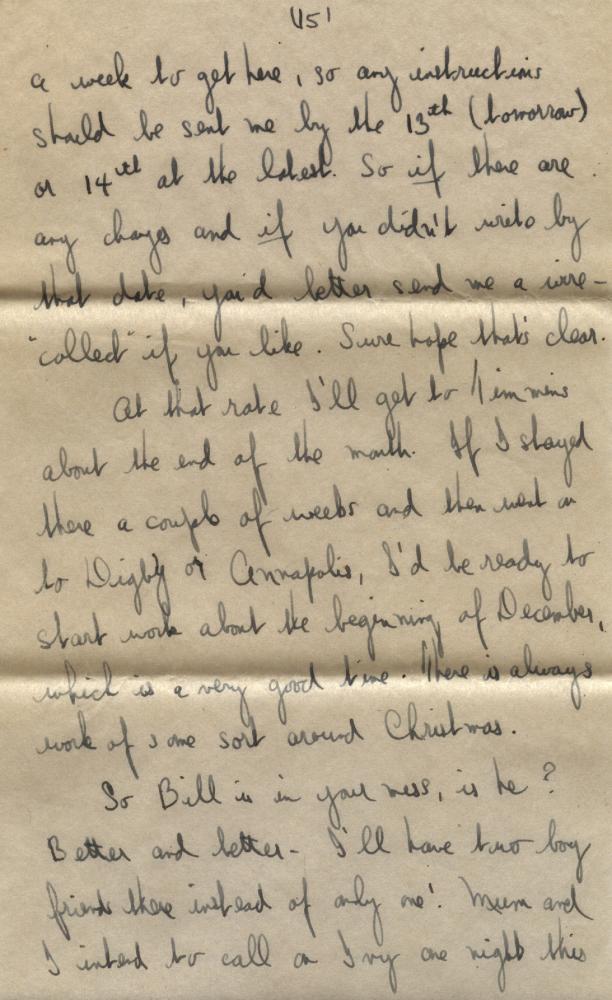 (5)
a week to get here, so any instructions
should be sent me by the 13th (tomorrow)
or 14th at the latest. So if there are
any changes and if you didn't write by
that date, you'd better send me a wire -
"collect" if you like. Sure hope that's clear.
At that rate I'll get to Timmins
about the end of the month. If I stayed
there a couple of weeks and then went on
to Digby or Annapolis, I'd be ready to
start work about the beginning of December,
which is a very good time. There is always
work of some sort around Christmas.
So Bill is in your mess, is he?
Better and better - I'll have two boy
friends there instead of only one! Mum and
I intend to call on Ivy one night this